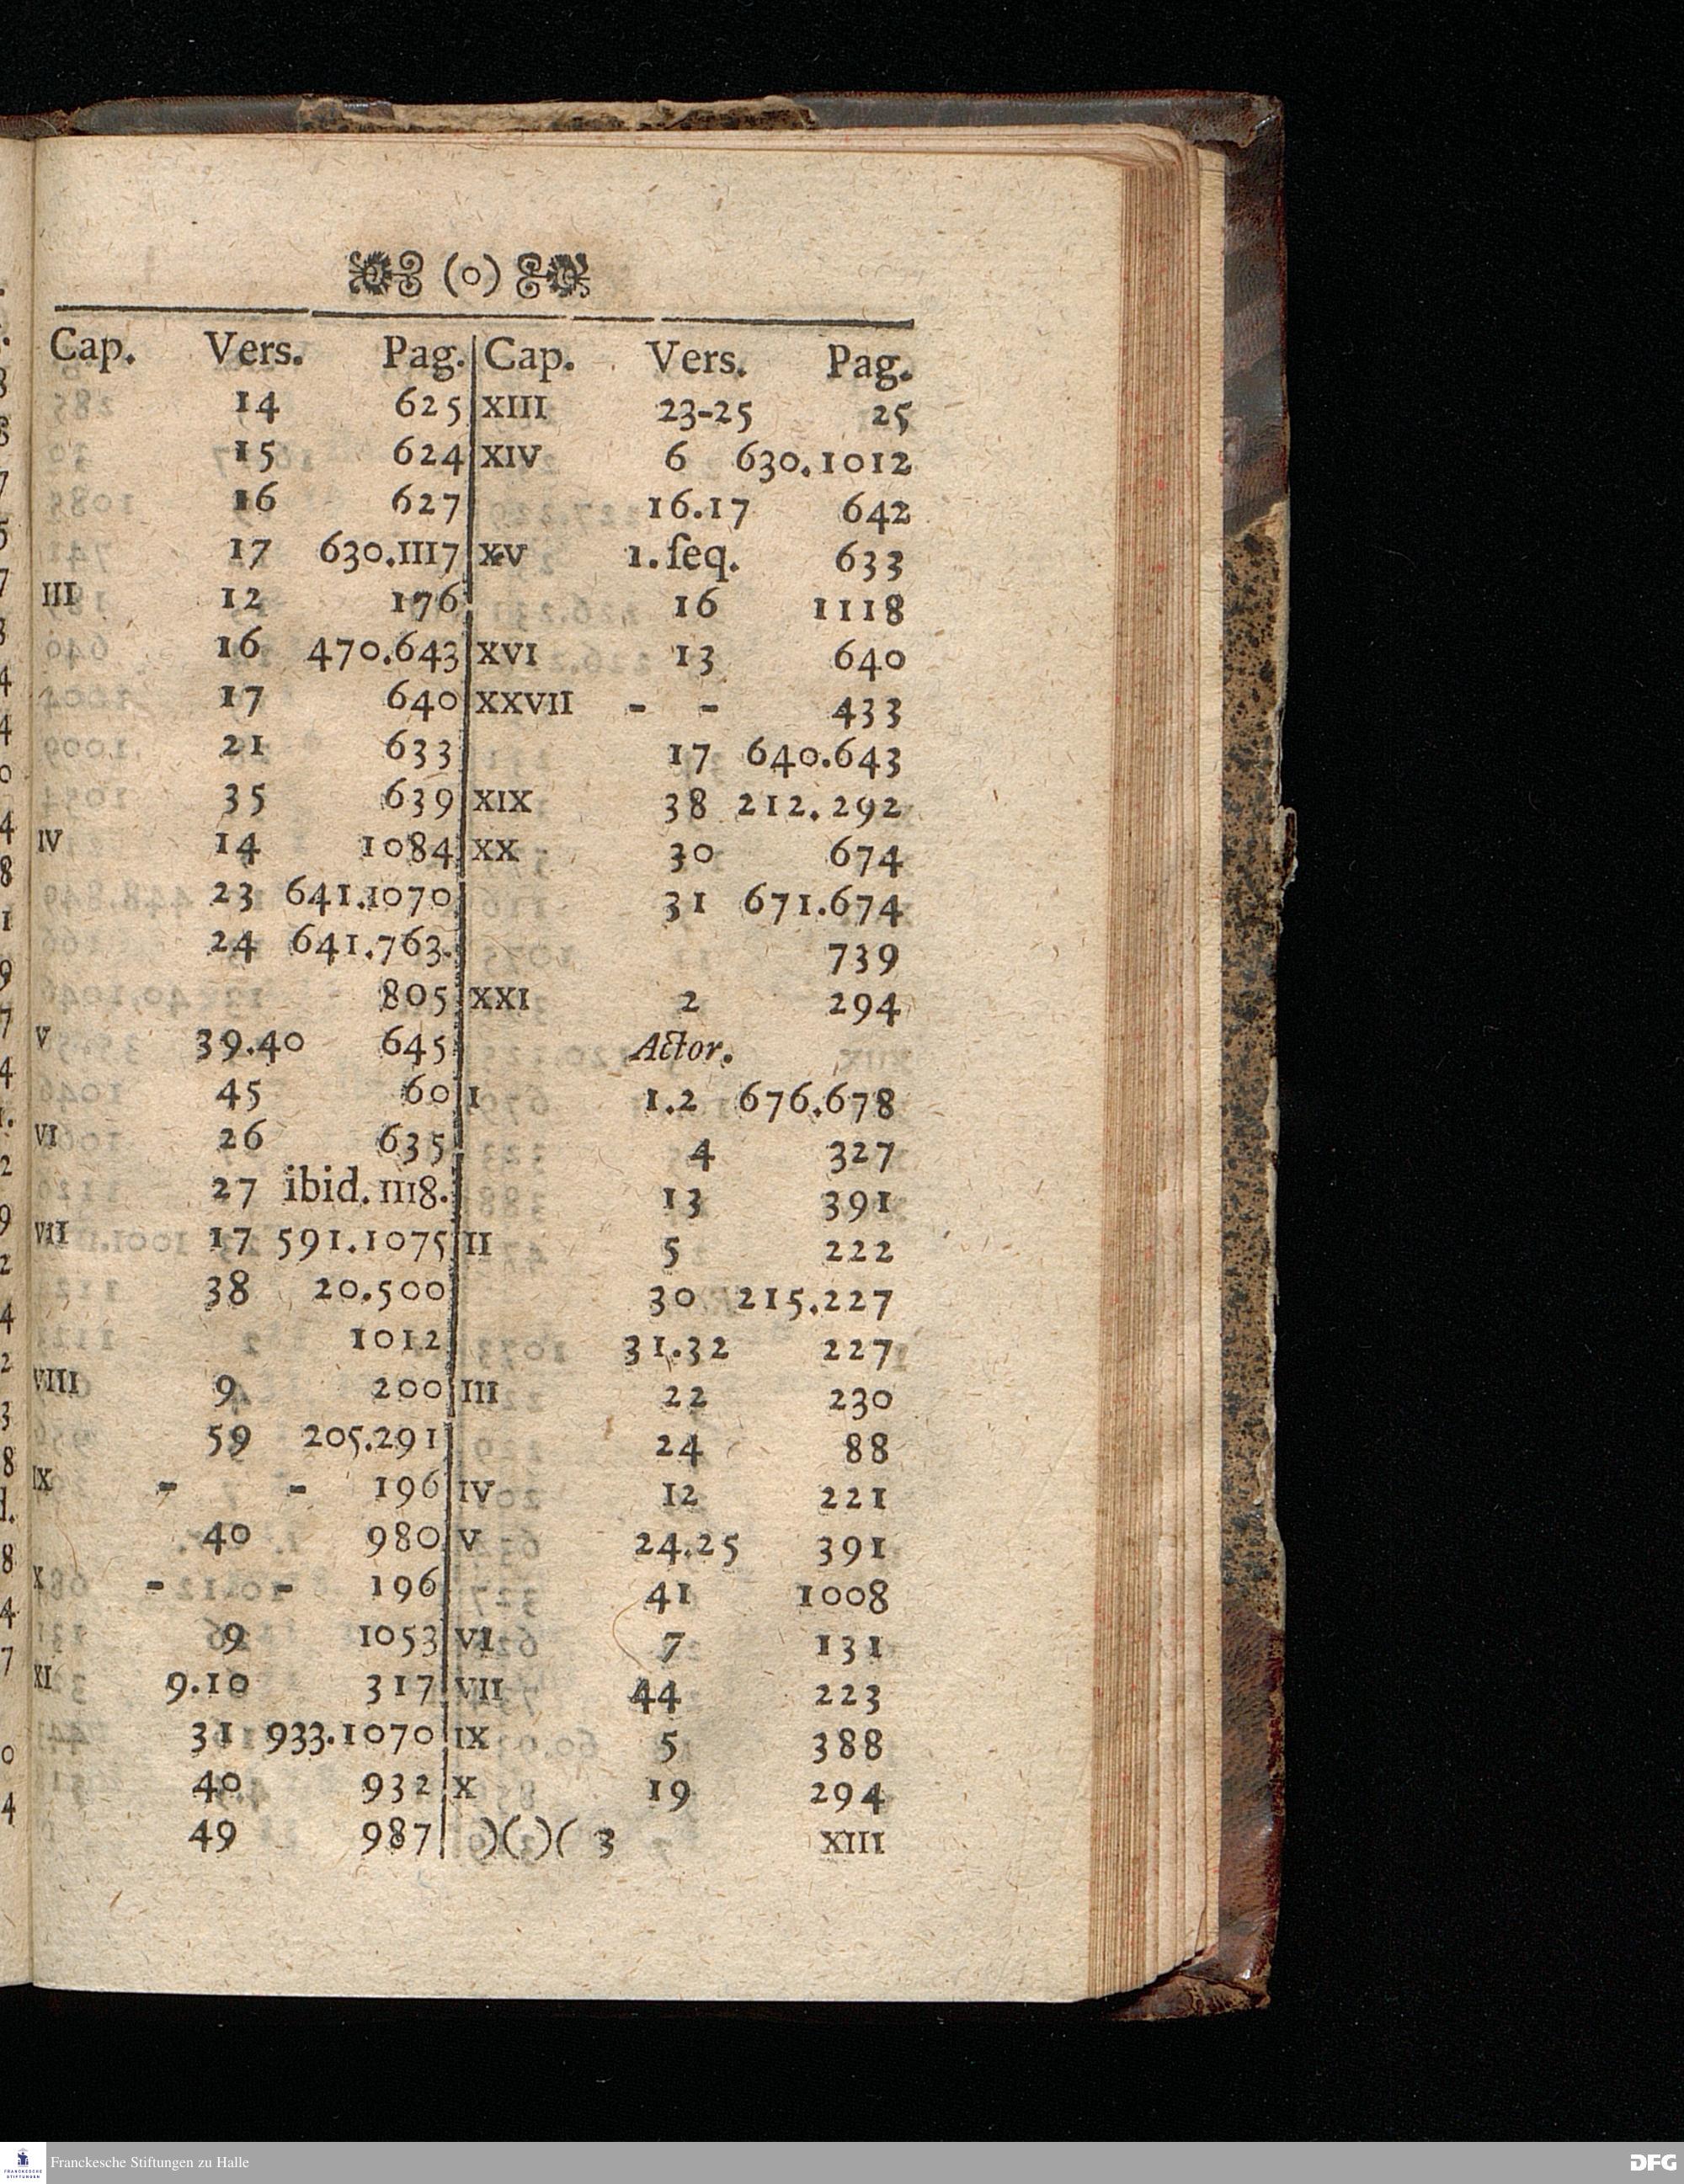 (o)
Cap. Vers. Pag.
14 625
15 624
16 627
17 630.1117
III 12 176
16 470.643
17 640
21 633
35 639
IV 14 1084
23 641.1070
24 641.763.
805
V 39.40 645
45 60
VI 26 635
27 ibid. 1118.
VII 17 591.1075
38 20.500
1012
VIII 9 200
59 205.291
IX - - 196
40 980
X - - 196
9 1053
XI 9.10 317
31 933.1070
40 932
49 987
Cap. Vers. Pag.
XIII 23-25 25
XIV 6 630.1012
16.17 642
XV 1.ſeq. 633
16 1118
XVI 13 640
XXVII - - 433
17 640.643
XIX 38 212.292
XX 30 674
31 671.674
739
XXI 2 294
Actor.
I 1.2 676.678
4 327
13 391
II 5 222
30 215.227
31.32 227
III 22 230
24 88
IV 12 221
V 24.25 391
41 1008
VI 7 131
VII 44 223
IX 5 388
X 19 294
)( )( 3 XIII
Franckesche Stiftungen zu Halle
DFG